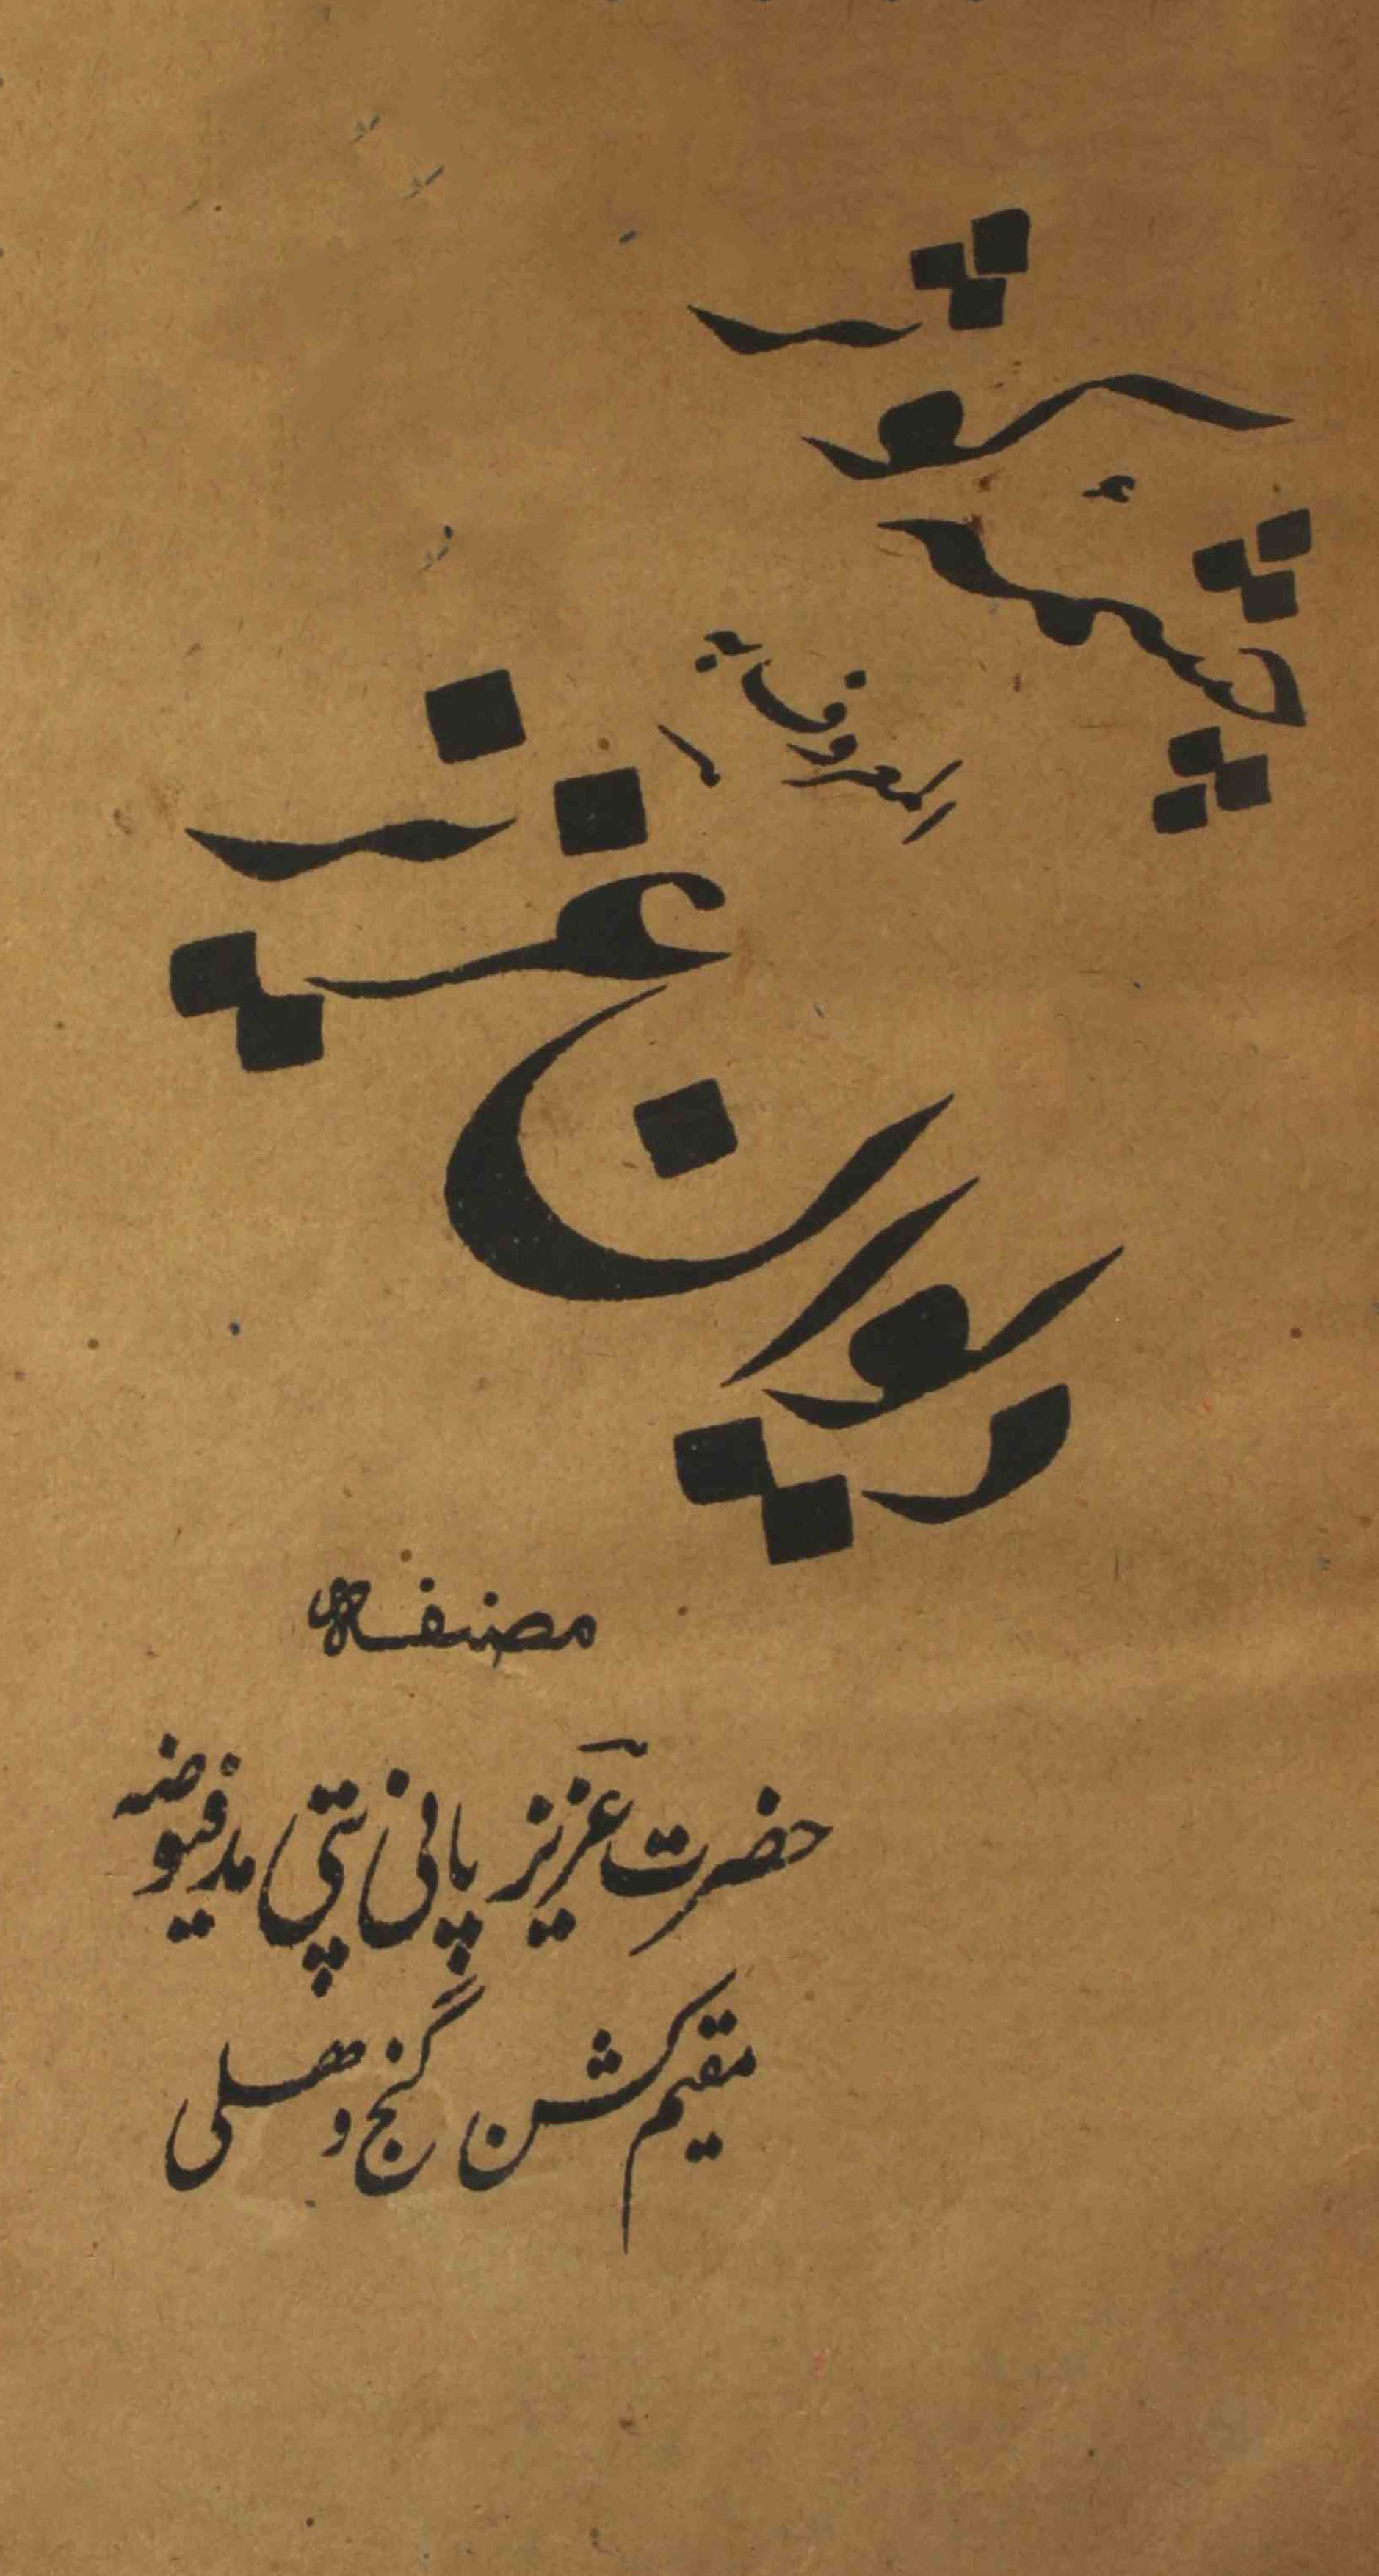 چشمۂ کوثر
المعروف بہ
دیوان عزیز
مصنفہ
حضرت عزیز پانی پتی مدفیوضہ
مقیم کشن گنج دھلی